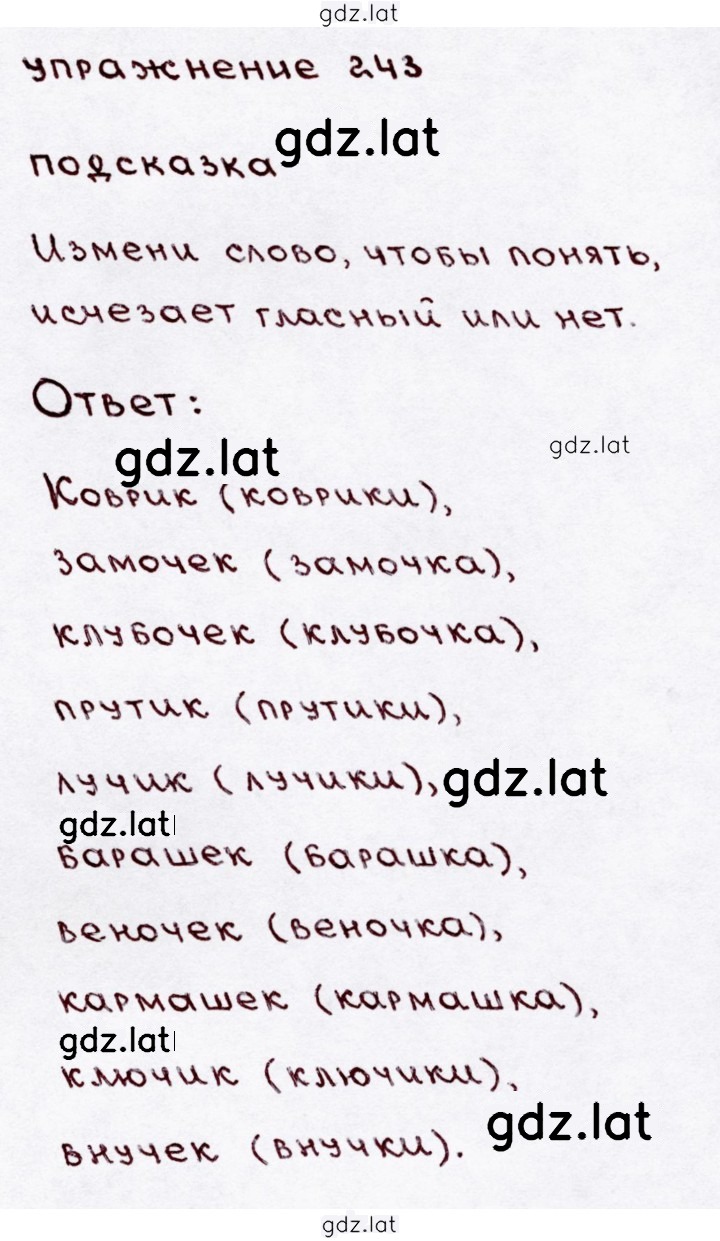 gdz.lat
упражнение 243
gdz.lat
подсказка
Измени слово, чтобы понять,
исчезает гласный или нет.
Ответ:
gdz.lat
gdz.lat
Коврик (коврики),
замочек (замочка),
клубочек (клубочка),
прутик (прутики),
лучик (лучики),
gdz.lat
gdz.lat
барашек (барашка),
веночек (веночка),
кармашек (кармашка),
gdz.lat
ключик (ключики),
gdz.lat
внучек (внучки).
gdz.lat